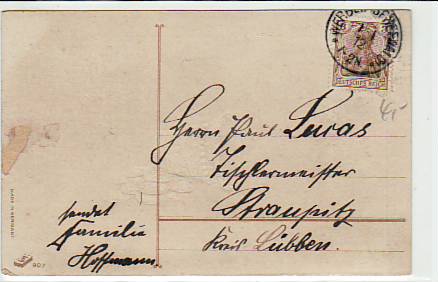 DEUTSCHES REICH
Herrn Paul Lucas
Tischlermeister
Straupitz
Kreis Lübben.
sendet
Familie
Hoffmann.
907